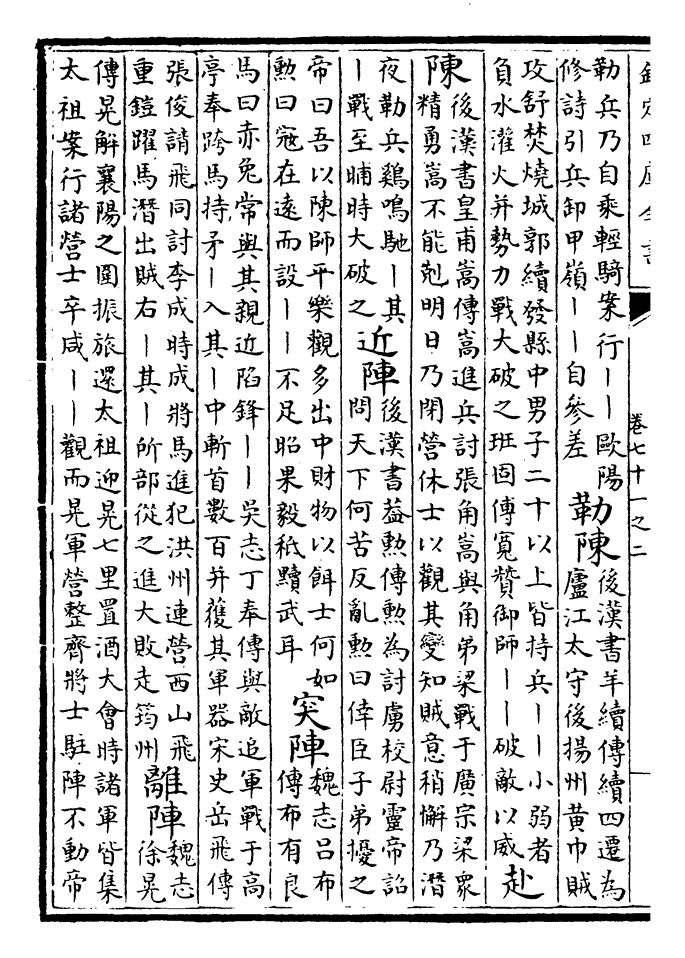 欽定四庫全書
卷七十一之二
勒兵乃自乘輕騎案行丨丨歐陽
修詩引兵卸甲嶺丨丨自參差
勒陳
後漢書羊續傳續四遷為
廬江太守後揚州黄巾賊
攻舒焚燒城郭續發縣中男子二十以上皆持兵丨丨小弱者
負水灌火并勢力戰大破之班固傳寛贊御師丨丨破敵以威
赴
陳
後漢書皇甫嵩傳嵩進兵討張角嵩與角弟梁戰于廣宗梁衆
精勇嵩不能剋明日乃閉營休士以觀其變知賊意稍懈乃潛
夜勒兵鷄鳴馳丨其
丨戰至晡時大破之
近陣
後漢書葢勲傳勲為討虜校尉靈帝詔
問天下何苦反亂勲曰倖臣子弟擾之
帝曰吾以陳師平樂觀多出中財物以餌士何如
勲曰冦在遠而設丨丨不足昭果毅秖黷武耳
突陣
魏志吕布
傳布有良
馬曰赤兔常與其親近陷鋒丨丨吳志丁奉傳與敵追軍戰于高
亭奉跨馬持矛丨入其丨中斬首數百并獲其軍器宋史岳飛傳
張俊請飛同討李成時成將馬進犯洪州連營西山飛
重鎧躍馬潛出賊右丨其丨所部從之進大敗走筠州
離陣
魏志
徐晃
傳晃解襄陽之圍振旅還太祖迎晃七里置酒大會時諸軍皆集
太祖案行諸營士卒咸丨丨觀而晃軍營整齊將士駐陣不動帝